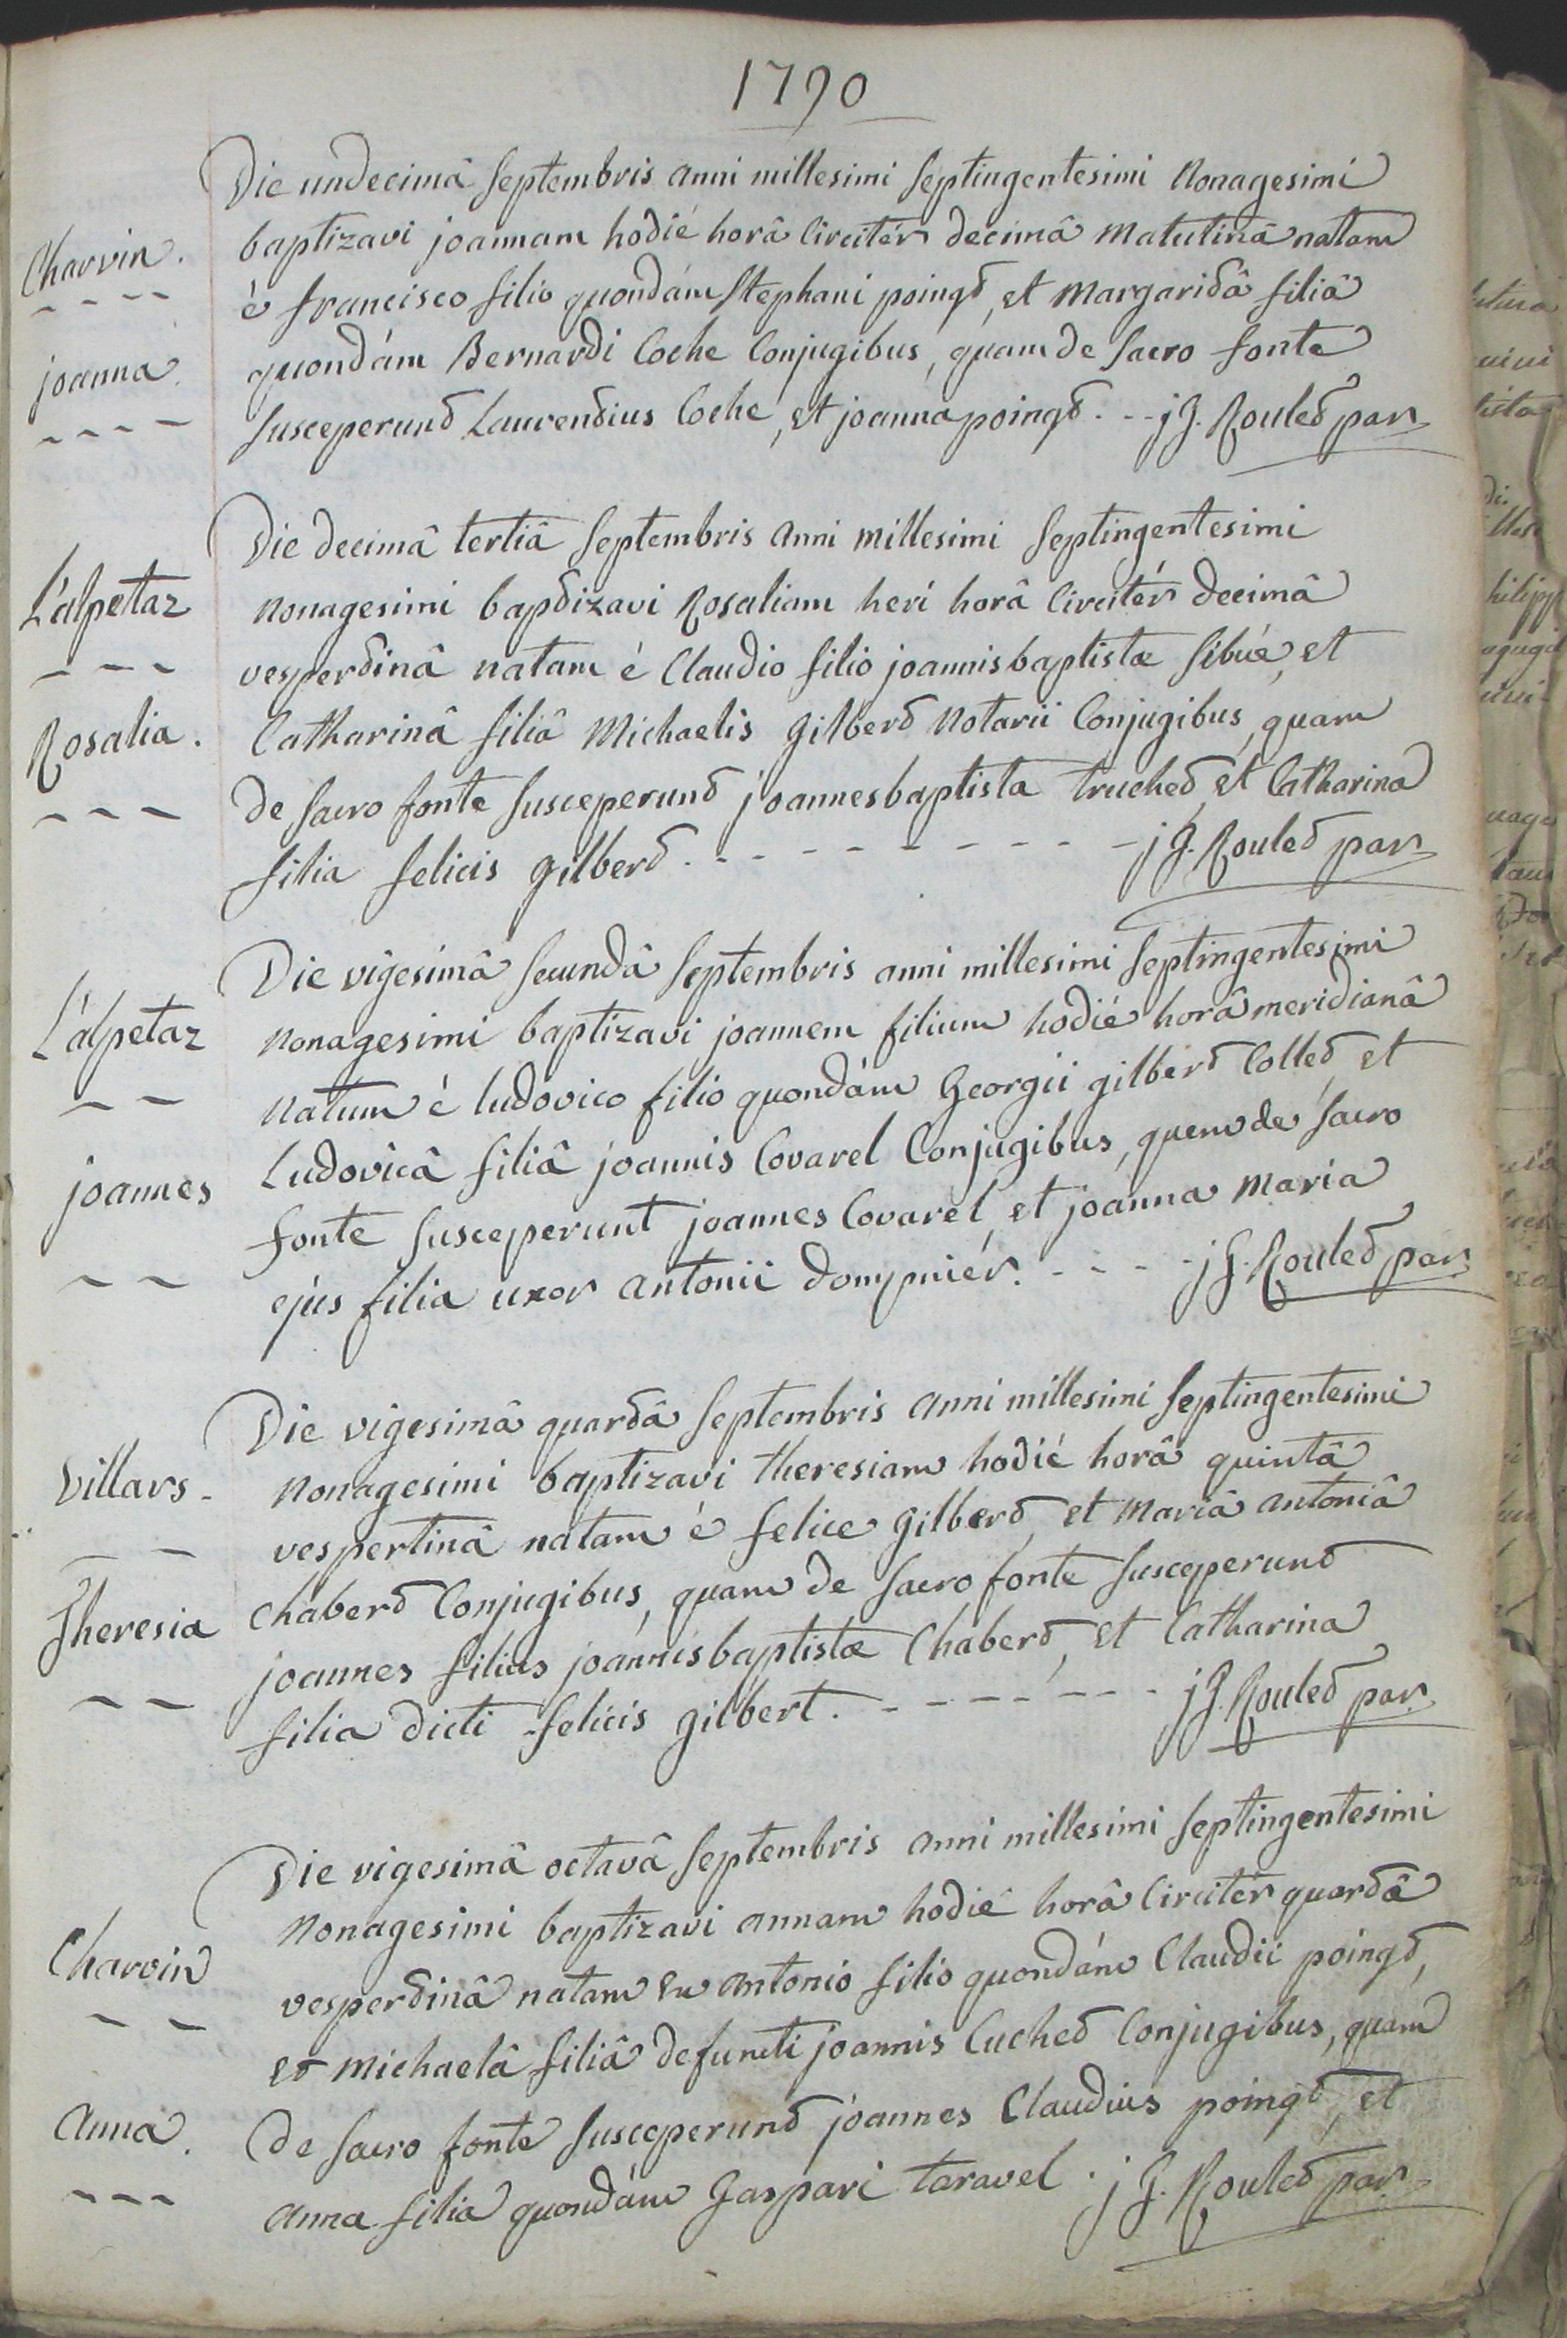 1790
Die undecimâ Septembris anni millesimi Septingentesimi Nonagesimi
Charvin.
baptizavi joannam hodié horâ Circitér decimâ Matutinâ natam
é francisco filio quondám Stephani poingt, et Margaritâ filiâ
joanna.
quondám Bernardi Coche Conjugibus, quam de Sacro fonte
Susceperunt Laurentius Coche, et joanna poingt. - - j J. Roulet par
Die decimâ tertiâ Septembris anni millesimi Septingentesimi
L'alpetaz
nonagesimi baptizavi Rosaliam heri horâ Circitér decimâ
vespertinâ natam é Claudio filio joannisbaptistæ Sibüe, et
Rosalia.
Catharinâ filiâ Michaelis Gilbert Notarii Conjugibus, quam
de Sacro fonte Susceperunt joannesbaptista truchet, et Catharina
filia felicis gilbert. - - - - - - - - - - j J. Roulet par
Die vigesimâ Secundâ Septembris anni millesimi Septingentesimi
L'alpetaz
nonagesimi baptizavi joannem filium hodié horâ meridianâ
natum é ludovico filio quondám Georgii gilbert Collet, et
joannes
Ludovicâ filiâ joannis Covarel Conjugibus, quem de Sacro
fonte Susceperunt joannes Covarel, et joanna Maria
ejus filia uxor antonii dompniér. - - - - j J. Roulet par
Die vigesimâ quartâ Septembris anni millesimi Septingentesimi
Villars -
nonagesimi baptizavi theresiam hodié horâ quintâ
vespertinâ natam é felice Gilbert, et Mariâ antoniâ
Theresia
Chabert Conjugibus, quam de Sacro fonte Susceperunt
joannes filius joannisbaptistæ Chabert, et Catharina
filia dicti felicis gilbert. - - - - - - - - j J. Roulet par
Die vigesimâ octavâ Septembris anni millesimi Septingentesimi
Nonagesimi baptizavi annam hodié horâ Circitér quartâ
Charvin
vespertinâ natam ex antonio filio quondám Claudii poingt,
et Michaelâ filiâ defuncti joannis Cuchet Conjugibus, quam
Anna.
de Sacro fonte Susceperunt joannes Claudius poingt, et
anna filia quondám Gaspari taravel. j J. Roulet par